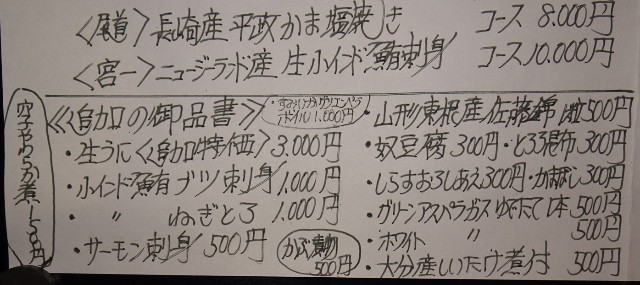 〈尾道〉長崎産平政かま塩焼き コース8.000円
〈宮一〉ニュージーランド産 生小インド鮪刺身 コース10.000円
空豆やわらか煮
《追加の御品書》
・生うに〈追加特価〉3.000円
・小インド鮪ブツ刺身1.000円
・〃 ねぎとろ 1.000円
・サーモン刺身 500円
かぶ漬物
500円
・山形東根産佐藤錦 500円
・奴豆腐300円・とろろ昆布300円
・しらすおろしあえ300円・300円
・グリーンアスパラガスゆでたて1本500円
・ホワイト 〃 500円
・大分産しいたけ煮付 500円